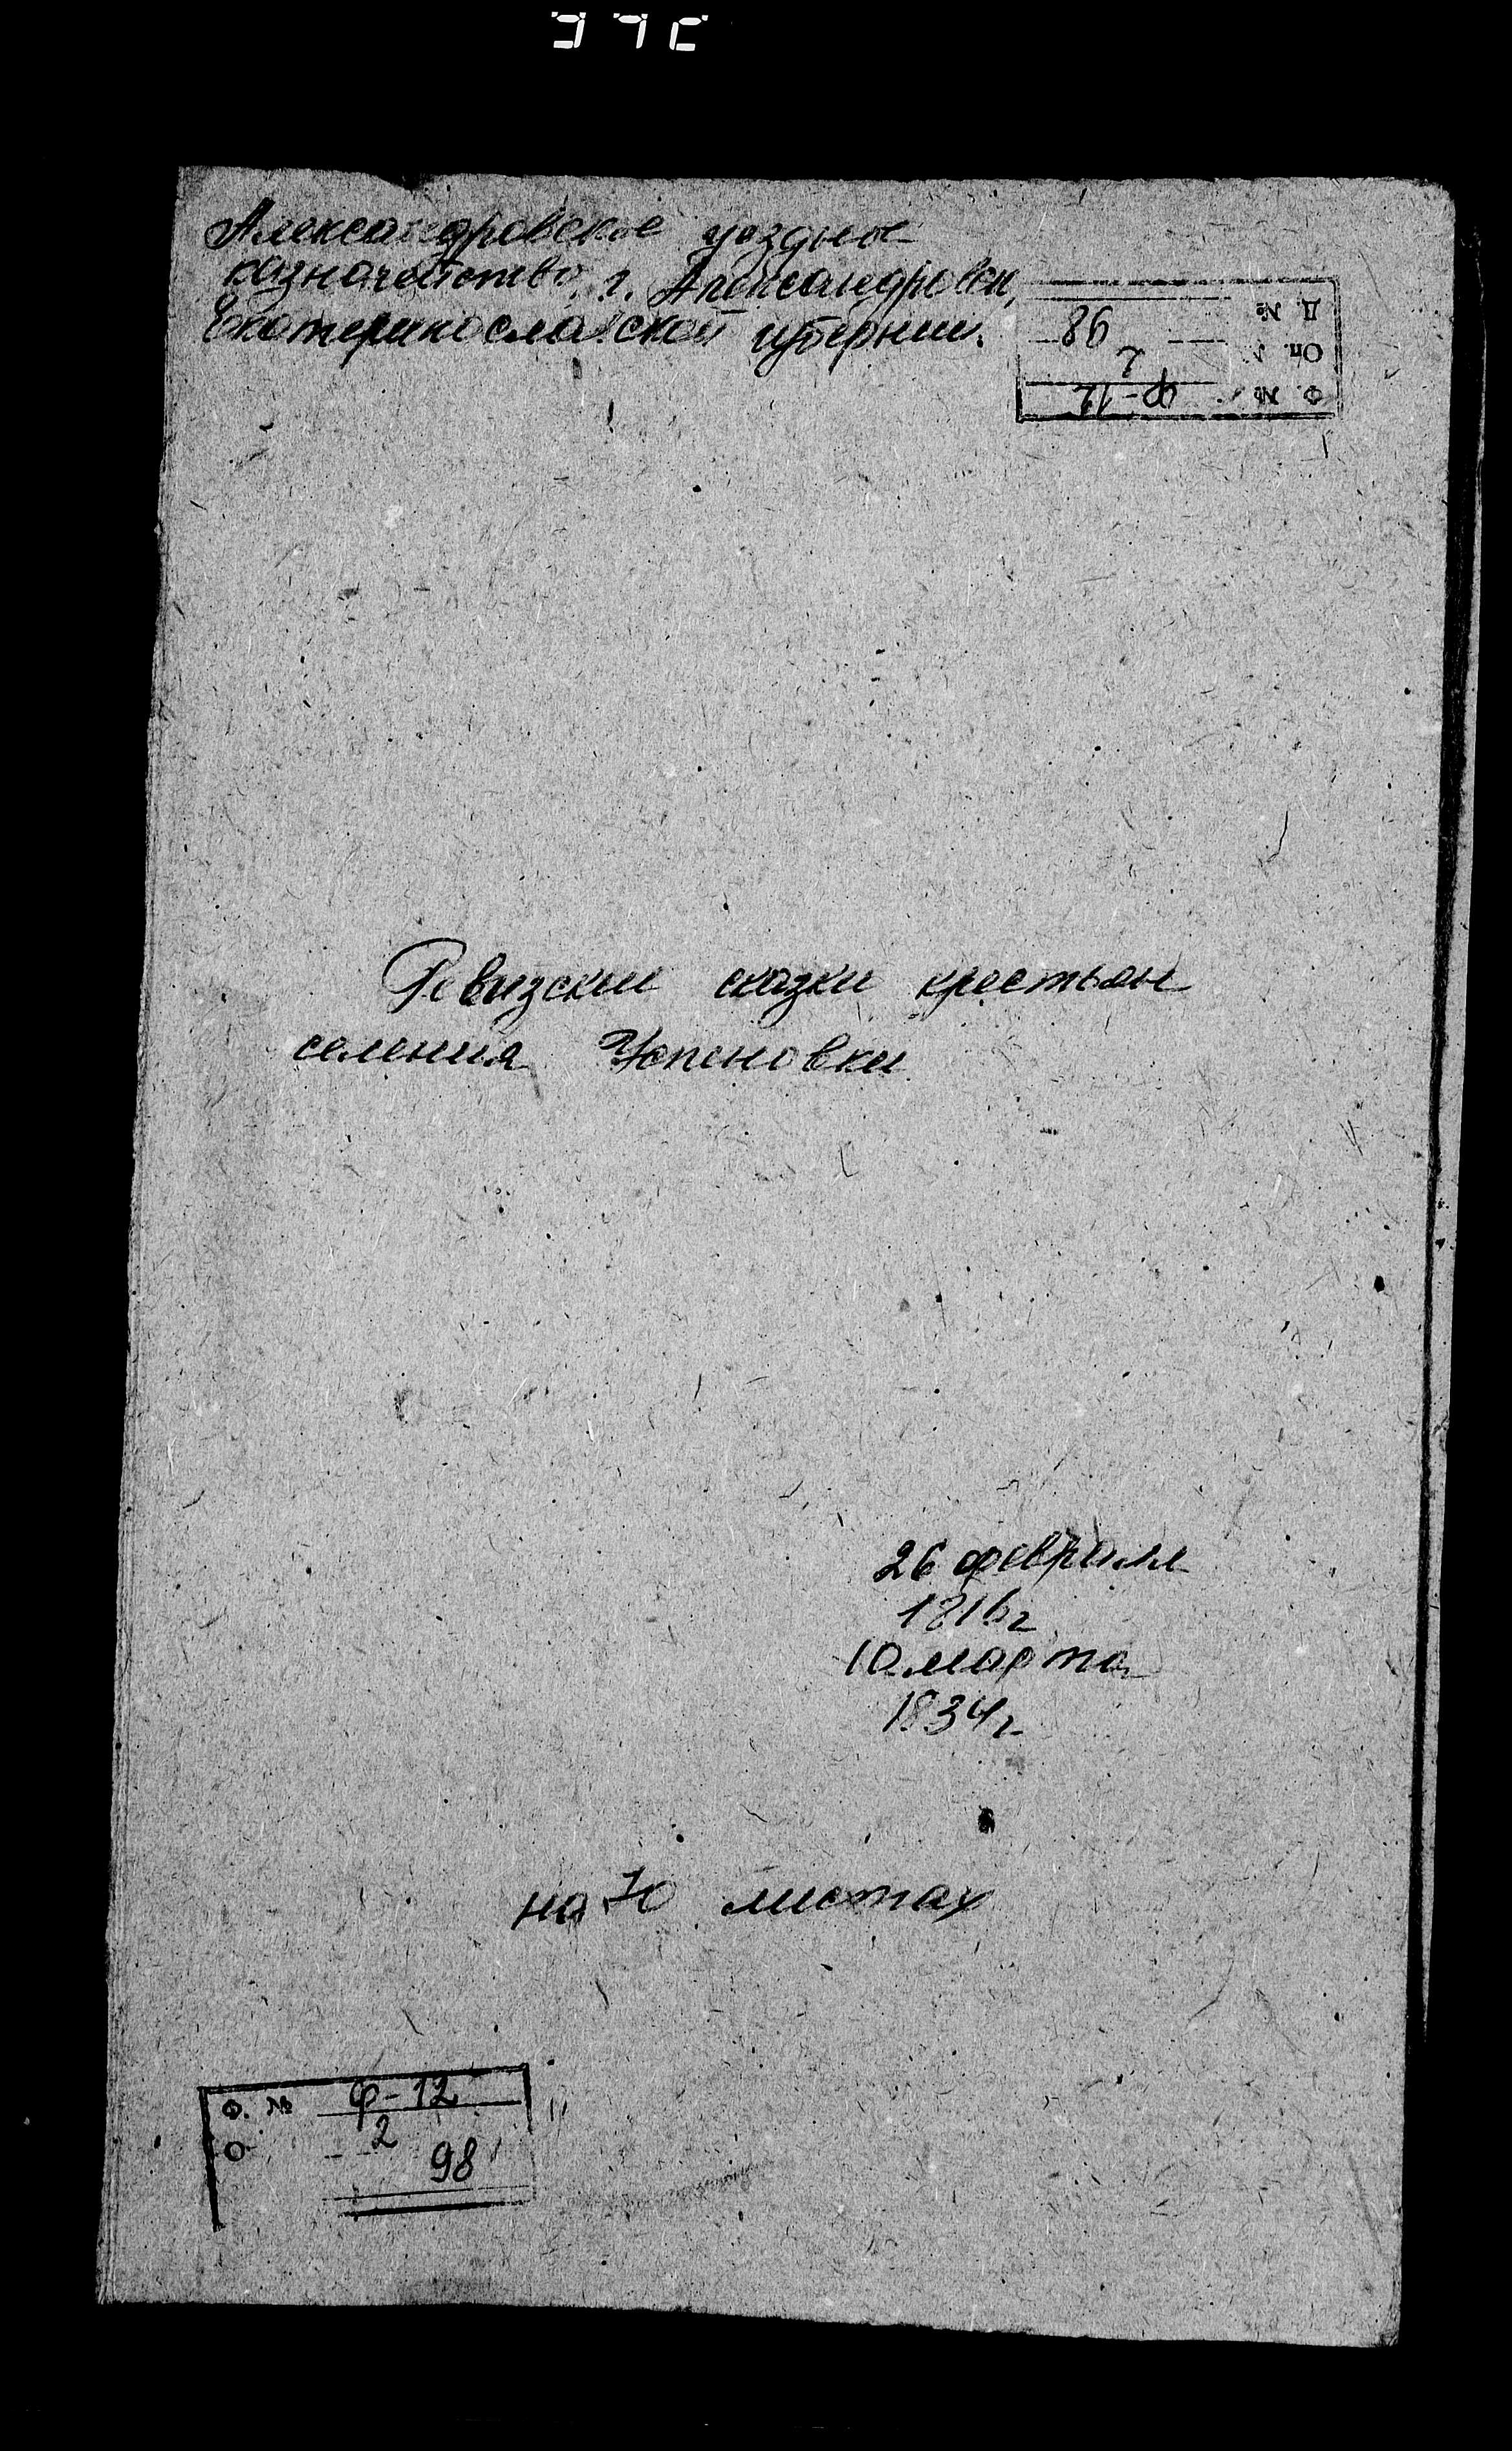 Александровское уездное
казначейство, г. Александровск,
Екатеринославской губернии.
Д. № 98
Оп. № 2
Ф. № Ф-12
Ревизские сказки крестьян
селения Успеновки
26 февраля
1816 г
10 марта
1834 г
на 70 листах
Ф. № Ф-12
О 2
98